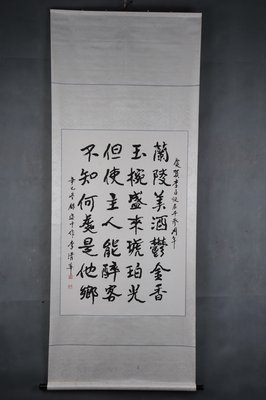 慶賀李白誕辰千周年
蘭陵美酒鬱金香
玉椀盛來琥珀光
但使主人能醉客
不知何處是他鄉
辛巳冬